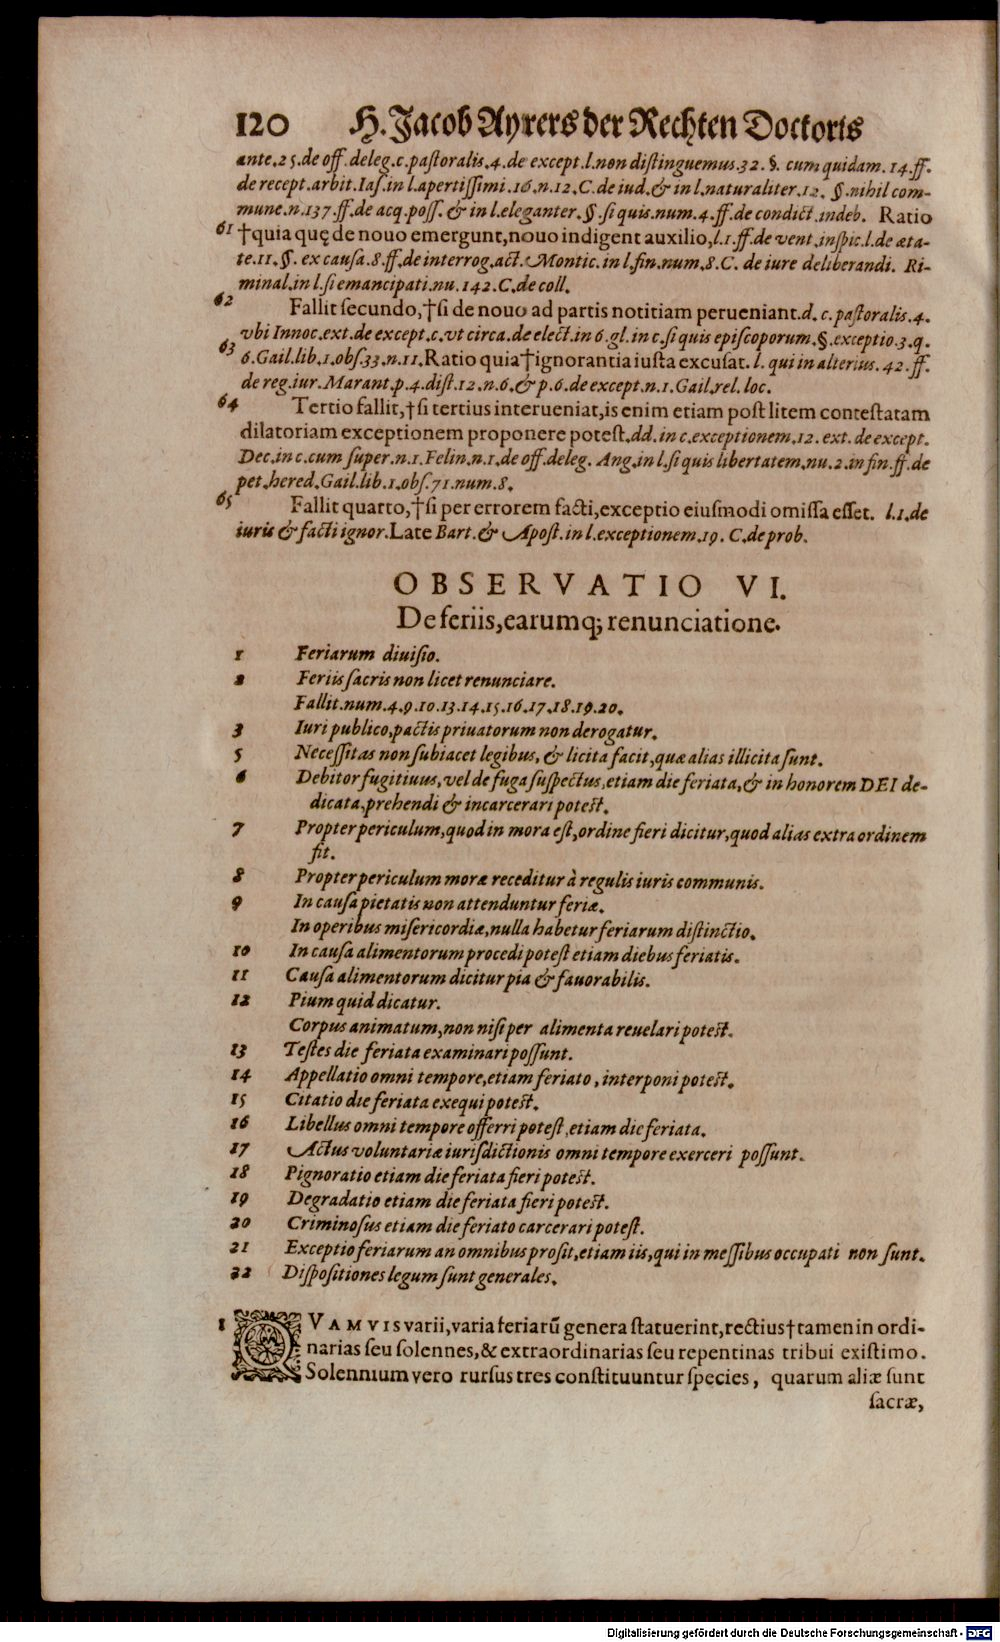 120 H. Jacob Ayrers der Rechten Doctoris
ante.25.de off.deleg.c.paſtoralis.4.de except.l.non diſtinguemus.32.§. cum quidam.14.ff.
de recept.arbit.Iaſ.in l.apertiſſimi.16.n.12.C.de iud.& in l.naturaliter.12. §.nihil com-
mune.n.137.ff.de acq.poſſ. & in l.eleganter.§.ſi quis.num.4.ff.de condict.indeb. Ratio
61 †quia quę de nouo emergunt,nouo indigent auxilio,l.1.ff.de vent.inſpic.l.de æta-
te.11.§. ex cauſa.8.ff.de interrog.act.Montic.in l.fin.num.8.C. de iure deliberandi. Ri-
minal.in l.ſi emancipati.nu.142.C.de coll.
62 Fallit ſecundo,†ſi de nouo ad partis notitiam perueniant.d. c.paſtoralis.4.
vbi Innoc.ext.de except.c.vt circa.de elect.in 6.gl.in c.ſi quis epiſcoporum.§.exceptio.3.q.
63 6.Gail.lib.1.obſ.33.n.11.Ratio quia†ignorantia iuſta excuſat. l. qui in alterius.42.ff.
de reg.iur.Marant.p.4.diſt.12.n.6.& p.6.de except.n.1.Gail.rel.loc.
64 Tertio fallit,†ſi tertius interueniat,is enim etiam poſt litem conteſtatam
dilatoriam exceptionem proponere poteſt.dd.in c.exceptionem.12.ext.de except.
Dec.in c.cum ſuper.n.1.Felin.n.1.de off.deleg. Ang.in l.ſi quis libertatem.nu.2.in fin.ff.de
pet.hered.Gail.lib.1.obſ.71.num.8.
65 Fallit quarto,†ſi per errorem facti,exceptio eiuſmodi omiſſa eſſet. l.1.de
iuris & facti ignor.Late Bart.& Apoſt.in l.exceptionem.19. C.de prob.
OBSERVATIO VI.
De feriis,earumq; renunciatione.
1 Feriarum diuiſio.
2 Feriis ſacris non licet renunciare.
Fallit.num.4.9.10.13.14.15.16.17.18.19.20.
3 Iuri publico,pactis priuatorum non derogatur.
5 Neceſſitas non ſubiacet legibus, & licita facit,quæ alias illicita ſunt.
6 Debitor fugitiuus,vel de fuga ſuſpectus,etiam die feriata,& in honorem DEI de-
dicata,prehendi & incarcerari poteſt.
7 Propter periculum,quod in mora eſt,ordine fieri dicitur,quod alias extra ordinem
fit.
8 Propter periculum moræ receditur à regulis iuris communis.
9 In cauſa pietatis non attenduntur feriæ.
In operibus miſericordiæ,nulla habetur feriarum diſtinctio.
10 In cauſa alimentorum procedi poteſt etiam diebus feriatis.
11 Cauſa alimentorum dicitur pia & fauorabilis.
12 Pium quid dicatur.
Corpus animatum,non niſi per alimenta reuelari poteſt.
13 Teſtes die feriata examinari poſſunt.
14 Appellatio omni tempore,etiam feriato, interponi poteſt.
15 Citatio die feriata exequi poteſt.
16 Libellus omni tempore offerri poteſt,etiam die feriata.
17 Actus voluntariæ iuriſdictionis omni tempore exerceri poſſunt.
18 Pignoratio etiam die feriata fieri poteſt.
19 Degradatio etiam die feriata fieri poteſt.
20 Criminoſus etiam die feriato carcerari poteſt.
21 Exceptio feriarum an omnibus proſit,etiam iis,qui in meſſibus occupati non ſunt.
22 Diſpoſitiones legum ſunt generales.
1 QVAMVIS varii,varia feriarū genera ſtatuerint,rectius†tamen in ordi-
narias ſeu ſolennes,& extraordinarias ſeu repentinas tribui existimo.
Solennium vero rurſus tres conſtituuntur ſpecies, quarum aliæ ſunt
ſacræ,
Digitalisierung gefördert durch die Deutsche Forschungsgemeinschaft - DFG